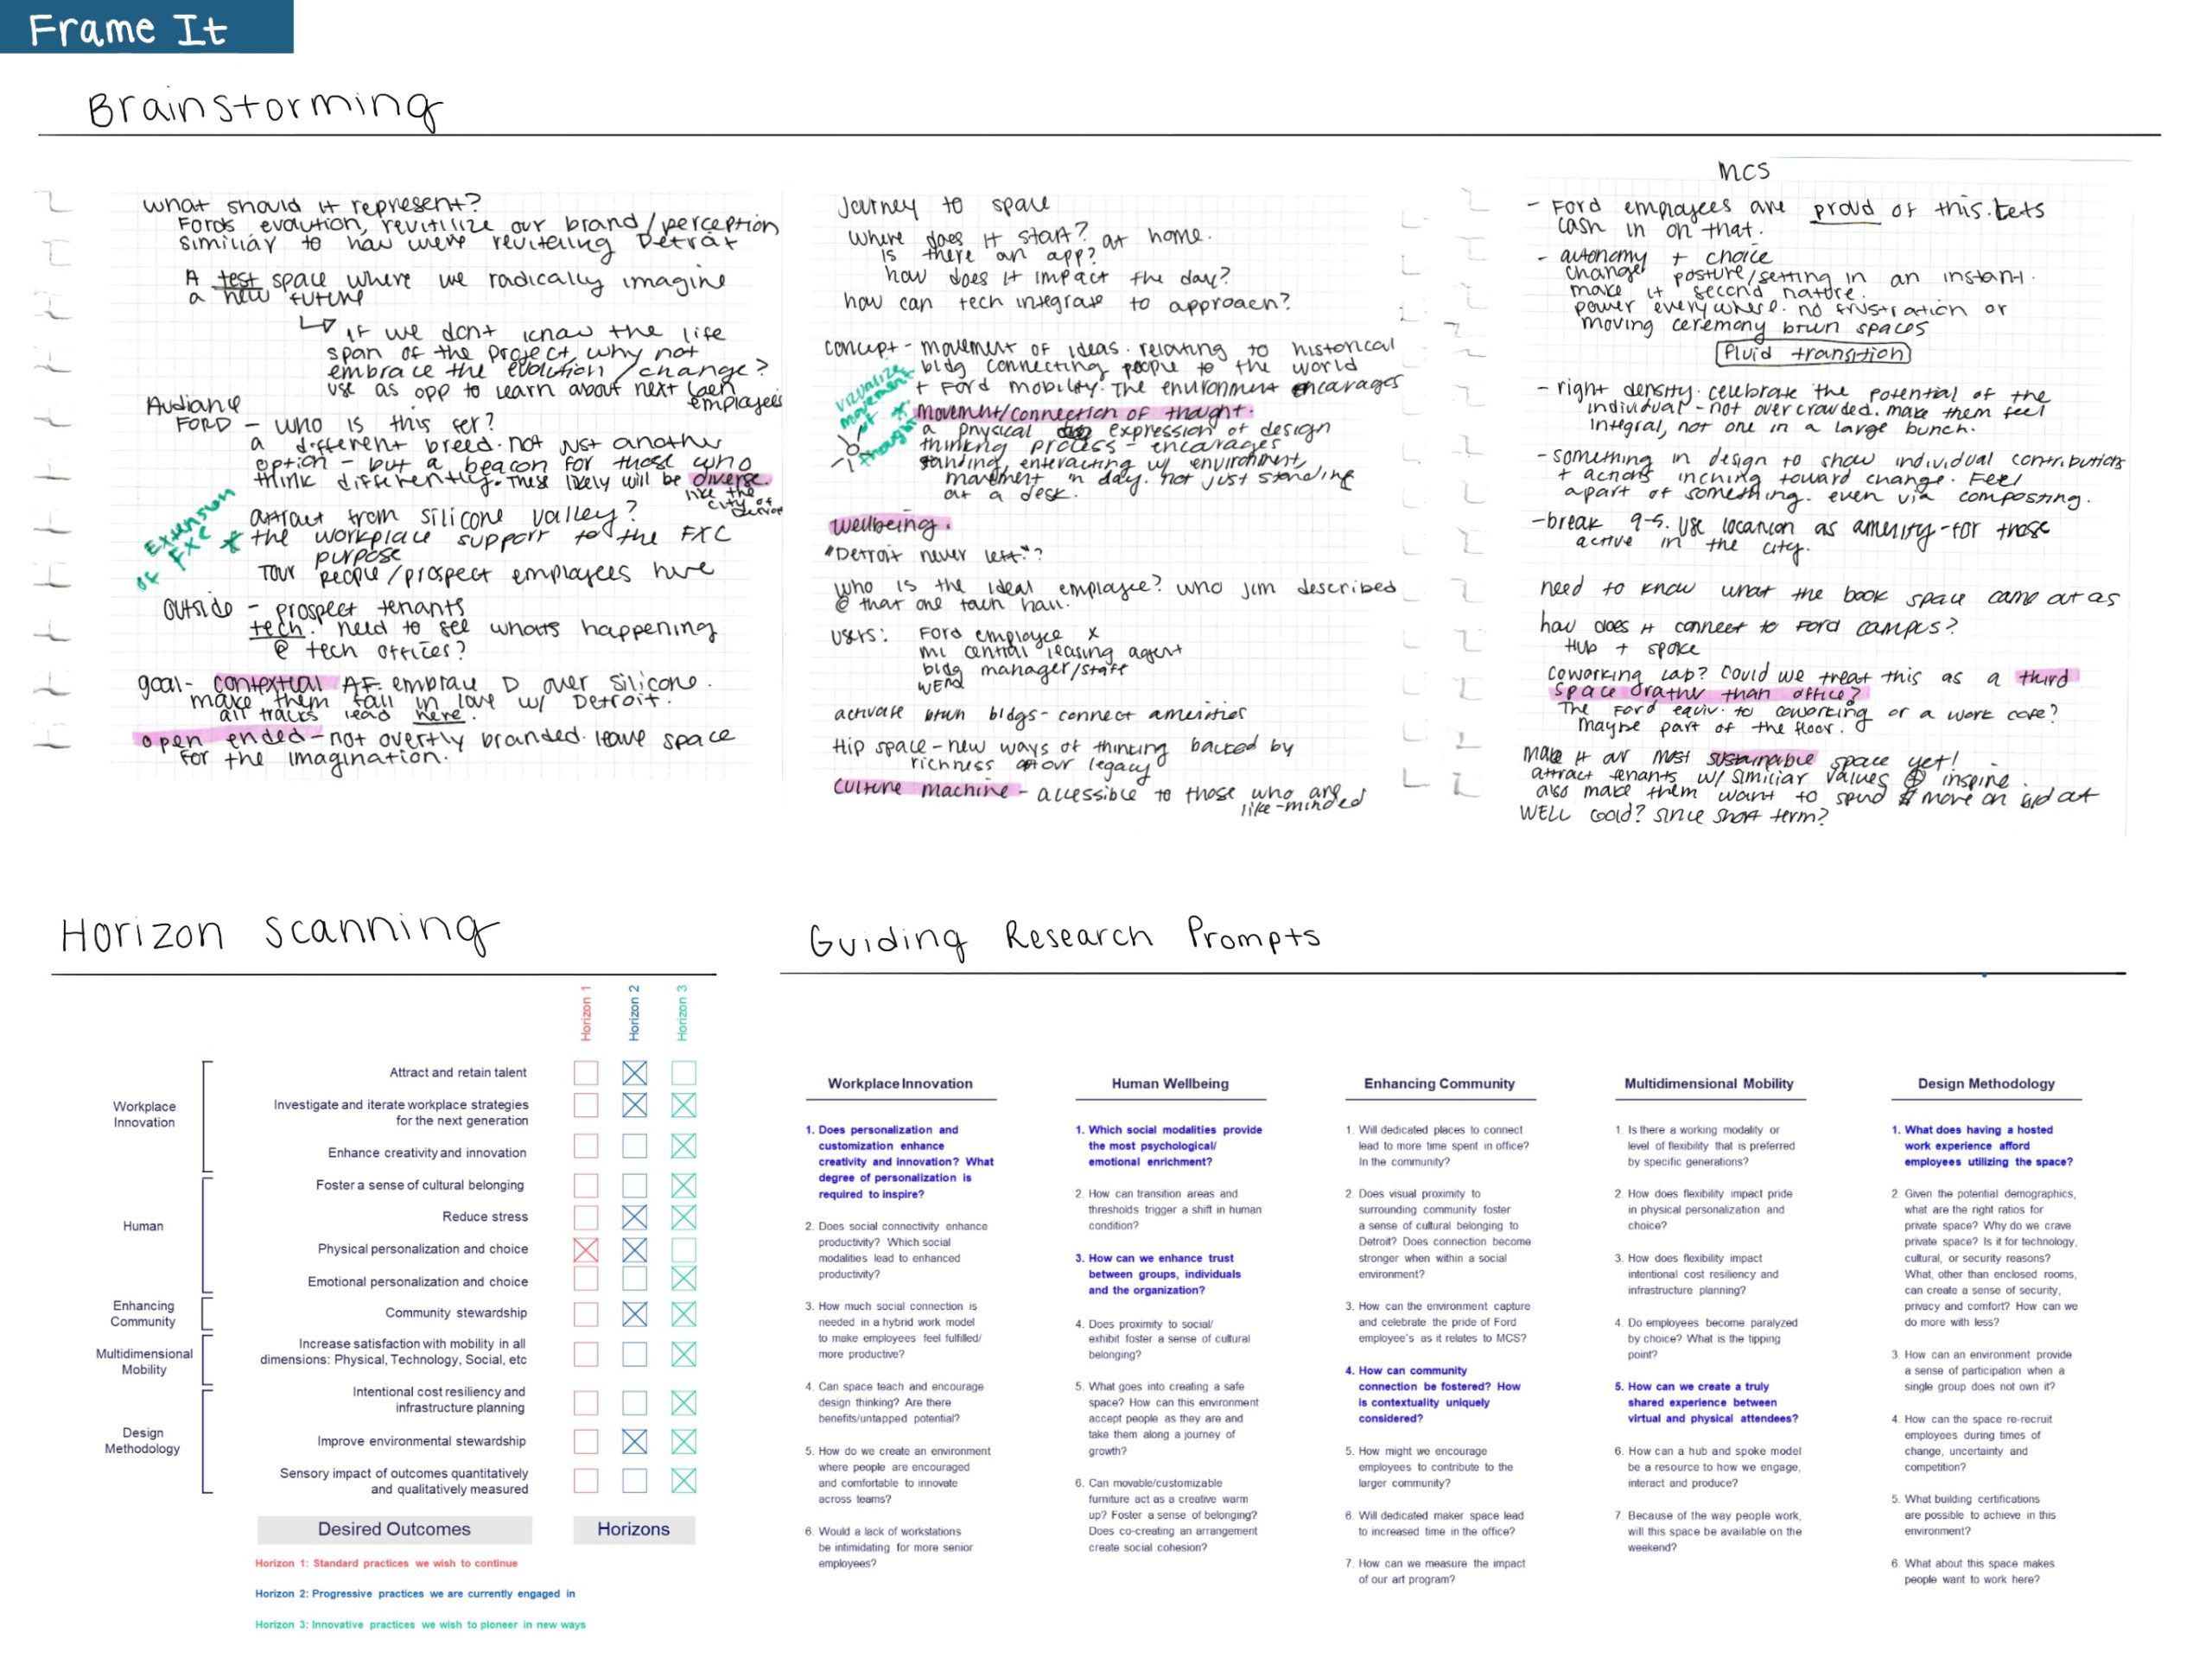 Frame It
Brainstorming
what should it represent?
Fords evolution, revitilize our brand/perception
similiar to how were revitaling Detroit
A test space where we radically imagine
a new future
↳ if we dont know the life
span of the project, why not
embrace the evolution / change?
use as opp to learn about next gen
employees
Audiance
FORD - who is this for?
a different breed. not just another
option - but a beacon for those who
think differently. These likely will be diverse.
like the
city of
Detroit
attract from silicone valley?
* the workplace support to the FXC
purpose
Extension
of FXC
Tour people/prospect employees here
Outside - prospect tenants
tech. need to see whats happening
@ tech offices?
goal - contextual AF. embrace D over silicone.
make them fall in love w/ Detroit.
all tracks lead here.
open ended - not overtly branded. leave space
for the imagination.
Journey to space
where does it start? at home.
is there an app?
how does it impact the day?
how can tech integrate to approach?
concept - movement of ideas. relating to historical
bldg connecting people to the world
+ Ford mobility. The environment encourages
* movement/connection of thought.
vizualize
movement
of
thought
a physical expression of design
thinking process - encourages
standing, enteracting w/ environment,
movement in day. not just standing
at a desk.
wellbeing.
"Detroit never left"?
who is the ideal employee? who Jim described
@ that one town hall.
users: Ford employee x
mi central leasing agent
bldg manager/staff
activate btwn bldgs - connect amenities
Hip space - new ways of thinking backed by
richness our legacy
culture machine - accessible to those who are
like-minded
MCS
- Ford employees are proud of this. Lets
cash in on that.
- autonomy + choice
change posture/setting in an instant.
make it second nature.
power everywhere. no frustration or
moving ceremony btwn spaces
Fluid transition
- right density. celebrate the potential of the
individual - not overcrowded. make them feel
integral, not one in a large bunch.
- something in design to show individual contributions
+ actions inching toward change. Feel
apart of something. even via composting.
- break 9-5. use location as amenity - for those
active in the city.
need to know what the book space came out as
how does it connect to Ford campus?
Hub + spoke
coworking lab? could we treat this as a third
space rather than office?
The Ford equiv. to coworking or a work cafe?
maybe part of the floor.
make it our most sustainable space yet!
attract tenants w/ similiar values ⊕ inspire.
also make them want to spend $ more on
WELL Gold? since short term?
Horizon Scanning
Horizon 1
Horizon 2
Horizon 3
Workplace
Innovation
Attract and retain talent
Investigate and iterate workplace strategies
for the next generation
Enhance creativity and innovation
Human
Foster a sense of cultural belonging
Reduce stress
Physical personalization and choice
Emotional personalization and choice
Enhancing
Community
Community stewardship
Multidimensional
Mobility
Increase satisfaction with mobility in all
dimensions: Physical, Technology, Social, etc
Design
Methodology
Intentional cost resiliency and
infrastructure planning
Improve environmental stewardship
Sensory impact of outcomes quantitatively
and qualitatively measured
Desired Outcomes
Horizons
Horizon 1: Standard practices we wish to continue
Horizon 2: Progressive practices we are currently engaged in
Horizon 3: Innovative practices we wish to pioneer in new ways
Guiding Research Prompts
Workplace Innovation
1. Does personalization and
customization enhance
creativity and innovation? What
degree of personalization is
required to inspire?
2. Does social connectivity enhance
productivity? Which social
modalities lead to enhanced
productivity?
3. How much social connection is
needed in a hybrid work model
to make employees feel fulfilled/
more productive?
4. Can space teach and encourage
design thinking? Are there
benefits/untapped potential?
5. How do we create an environment
where people are encouraged
and comfortable to innovate
across teams?
6. Would a lack of workstations
be intimidating for more senior
employees?
Human Wellbeing
1. Which social modalities provide
the most psychological/
emotional enrichment?
2. How can transition areas and
thresholds trigger a shift in human
condition?
3. How can we enhance trust
between groups, individuals
and the organization?
4. Does proximity to social/
exhibit foster a sense of cultural
belonging?
5. What goes into creating a safe
space? How can this environment
accept people as they are and
take them along a journey of
growth?
6. Can movable/customizable
furniture act as a creative warm
up? Foster a sense of belonging?
Does co-creating an arrangement
create social cohesion?
Enhancing Community
1. Will dedicated places to connect
lead to more time spent in office?
In the community?
2. Does visual proximity to
surrounding community foster
a sense of cultural belonging to
Detroit? Does connection become
stronger when within a social
environment?
3. How can the environment capture
and celebrate the pride of Ford
employee's as it relates to MCS?
4. How can community
connection be fostered? How
is contextuality uniquely
considered?
5. How might we encourage
employees to contribute to the
larger community?
6. Will dedicated maker space lead
to increased time in the office?
7. How can we measure the impact
of our art program?
Multidimensional Mobility
1. Is there a working modality or
level of flexibility that is preferred
by specific generations?
2. How does flexibility impact pride
in physical personalization and
choice?
3. How does flexibility impact
intentional cost resiliency and
infrastructure planning?
4. Do employees become paralyzed
by choice? What is the tipping
point?
5. How can we create a truly
shared experience between
virtual and physical attendees?
6. How can a hub and spoke model
be a resource to how we engage,
interact and produce?
7. Because of the way people work,
will this space be available on the
weekend?
Design Methodology
1. What does having a hosted
work experience afford
employees utilizing the space?
2. Given the potential demographics,
what are the right ratios for
private space? Why do we crave
private space? Is it for technology,
cultural, or security reasons?
What, other than enclosed rooms,
can create a sense of security,
privacy and comfort? How can we
do more with less?
3. How can an environment provide
a sense of participation when a
single group does not own it?
4. How can the space re-recruit
employees during times of
change, uncertainty and
competition?
5. What building certifications
are possible to achieve in this
environment?
6. What about this space makes
people want to work here?